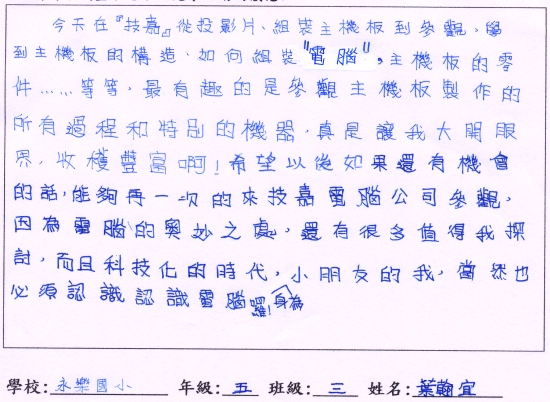 今天在『技嘉』從投影片、組裝主機板到參觀，學
到主機板的構造、如何組裝"電腦"，主機板的零
件……等等，最有趣的是參觀主機板製作的
所有過程和特別的機器，真是讓我大開眼
界，收穫豐富啊！希望以後如果還有機會
的話，能夠再一次的來技嘉電腦公司參觀，
因為電腦的奧妙之處，還有很多值得我探
討，而且科技化的時代，身為小朋友的我，當然也
必須認識認識電腦囉！
學校：永樂國小 年級：五 班級：三 姓名：葉翰宜